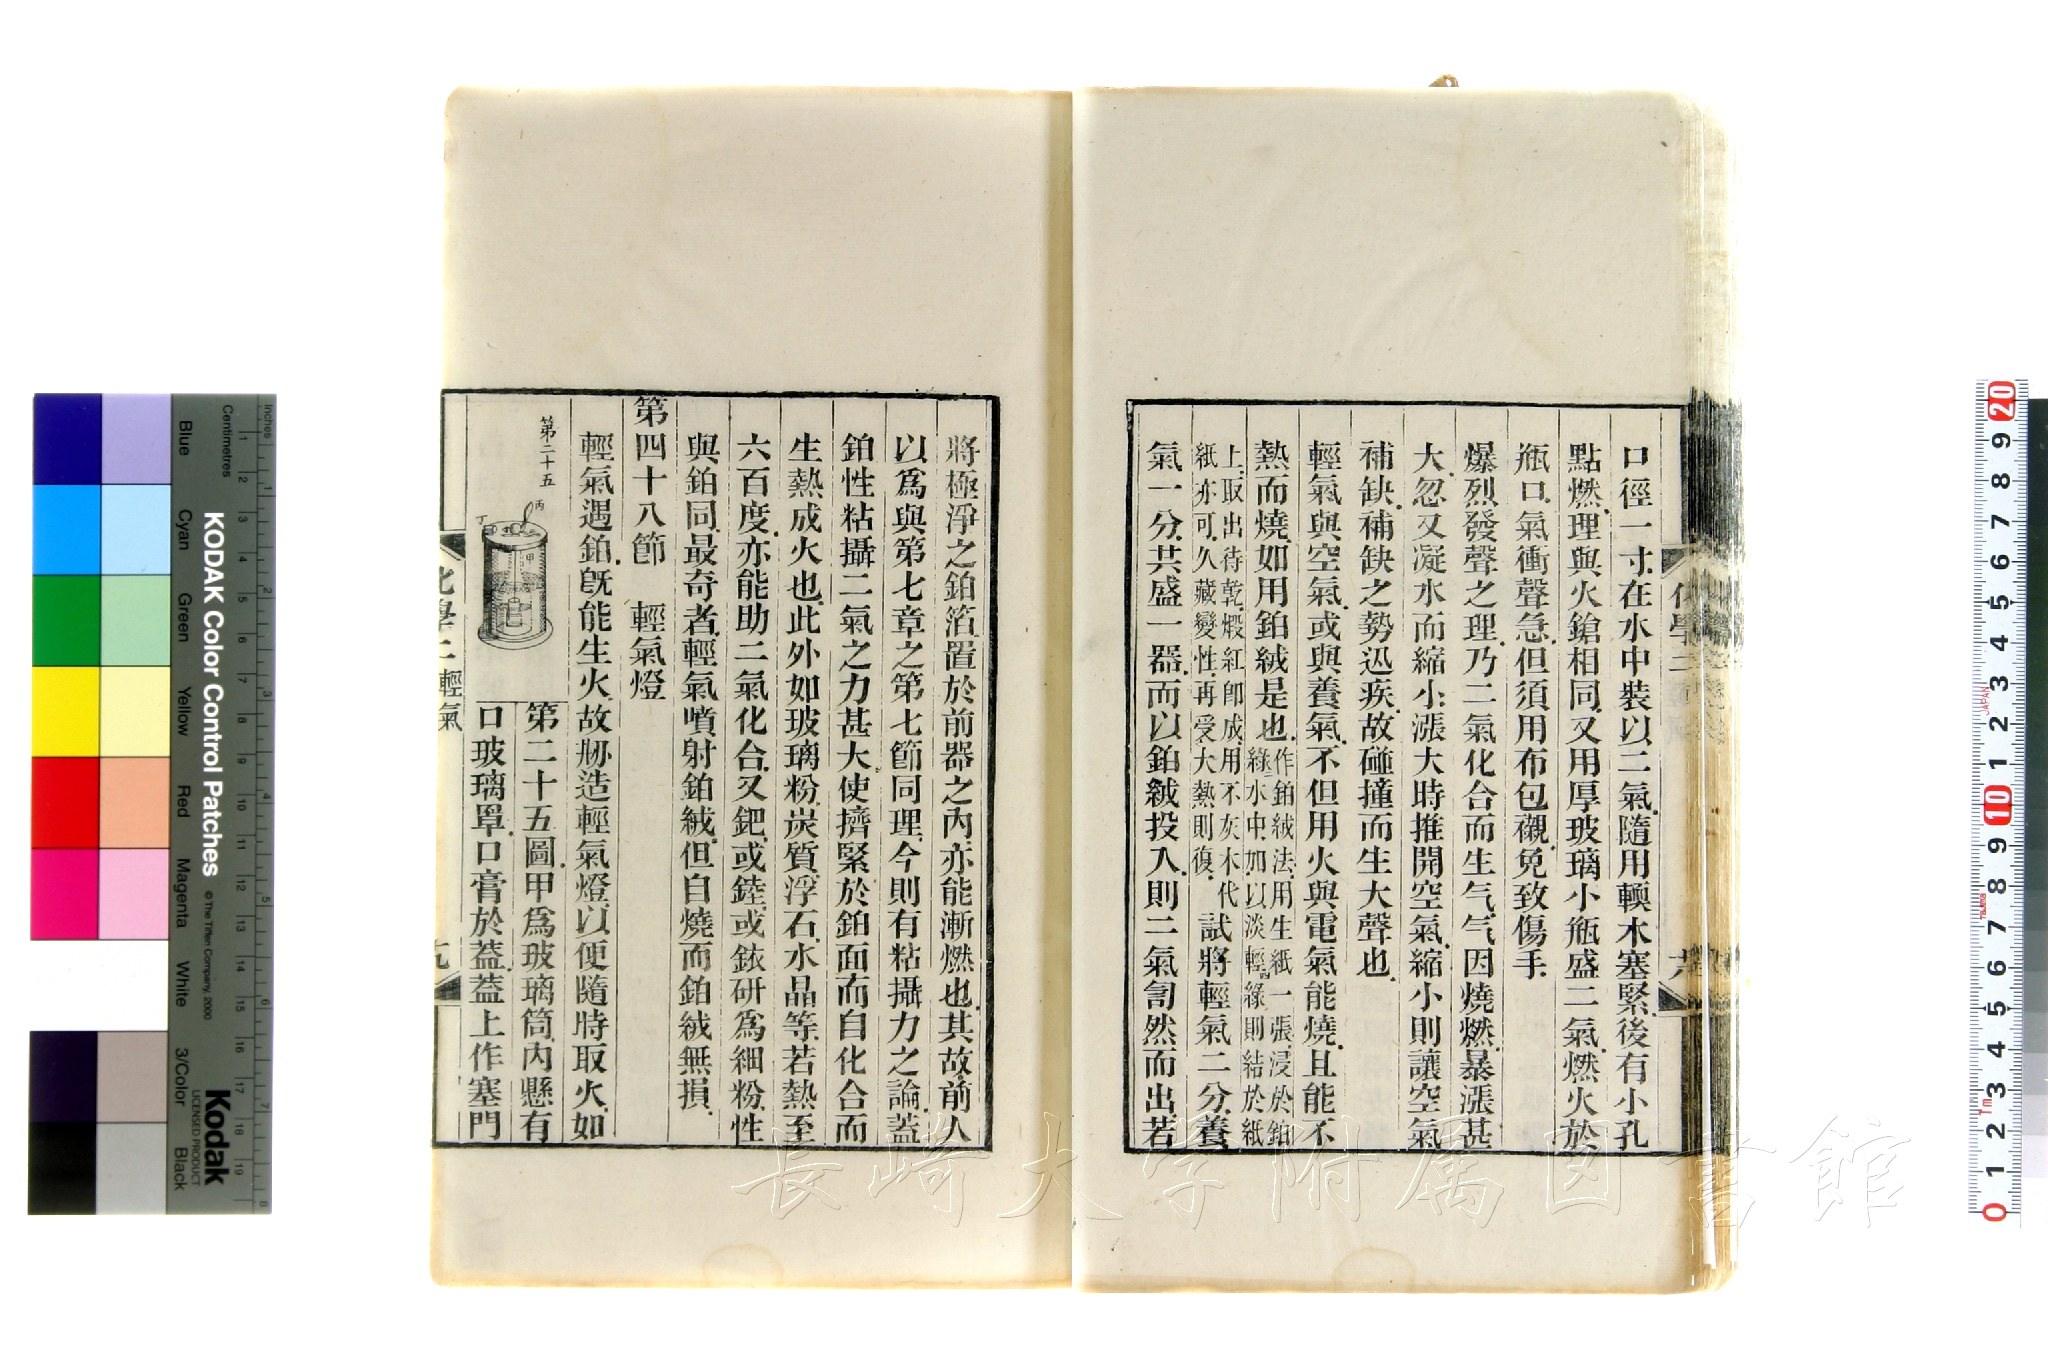 口徑一寸在水中裝以二氣隨用輭木塞緊後有小孔
點燃理與火鎗相同又用厚玻璃小瓶盛二氣燃火於
瓶口氣衝聲急但須用布包襯免致傷手
爆烈發聲之理乃二氣化合而生气气因燒燃暴漲甚
大忽又凝水而縮小漲大時推開空氣縮小則讓空氣
補缺補缺之勢迅疾故碰撞而生大聲也
輕氣與空氣或與養氣不但用火與電氣能燒且能不
熱而燒如用鉑絨是也作鉑絨法用生紙一張浸於鉑
綠水中加以淡輕綠則結於紙
上取出待乾煅紅即成用不灰木代
紙亦可久藏變性再受大熱則復 試將輕氣二分養
氣一分共盛一器而以鉑絨投入則二氣訇然而出若
化學二
將極淨之鉑箔置於前器之內亦能漸燃也其故前人
以爲與第七章之第七節同理今則有粘攝力之論蓋
鉑性粘攝二氣之力甚大使擠緊於鉑面而自化合而
生熱成火也此外如玻璃粉炭質浮石水晶等若熱至
六百度亦能助二氣化合又鈀或銠或銥研爲細粉性
與鉑同最奇者輕氣噴射鉑絨但自燒而鉑絨無損
第四十八節 輕氣燈
輕氣遇鉑旣能生火故刱造輕氣燈以便隨時取火如
第二十五
丙
丁
甲
第二十五圖甲爲玻璃筒內懸有
口玻璃罩口膏於蓋蓋上作塞門
化學二 輕氣
KODAK Color Control Patches
© The Tiffen Company, 2000
Kodak
LICENSED PRODUCT
Inches
Centimetres
Blue
Cyan
Green
Yellow
Red
Magenta
White
3/Color
Black
長崎大学附属図書館
JAPAN
20
9
8
7
6
5
4
3
2
1
10
9
8
7
6
5
4
3
2
1
0